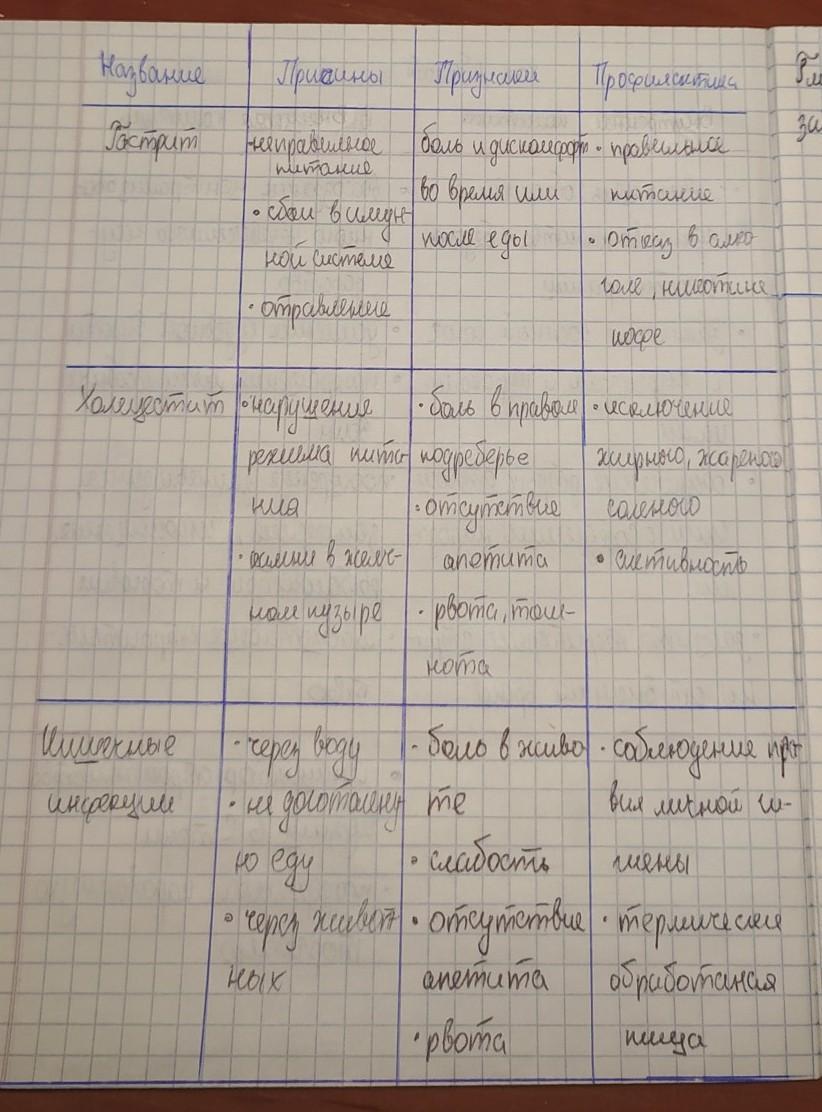 Название Причины Признаки Профилактика
Гастрит
·неправильное
питание
• сбои в имун-
ной системе
· отравление
боль и дискомфорт
во время или
после еды
· правильное
питание
• отказ в алко-
голе, никотине
кофе
Холецестит
·нарушения
режима пита-
ния
· камни в желч-
ном пузыре
· боль в правом
подреберье
· отсутствие
апетита
· рвота, тош-
нота
· исключение
жирного, жареного
соленого
• активность
Кишечные
инфекции
· через воду
· не доготоленну-
ю еду
• через живот
ных
· боль в живо
те
• слабость
• отсутствие
апетита
· рвота
· соблюдение пра-
вил личной ги-
гиены
· термически
обработаная
пища
за